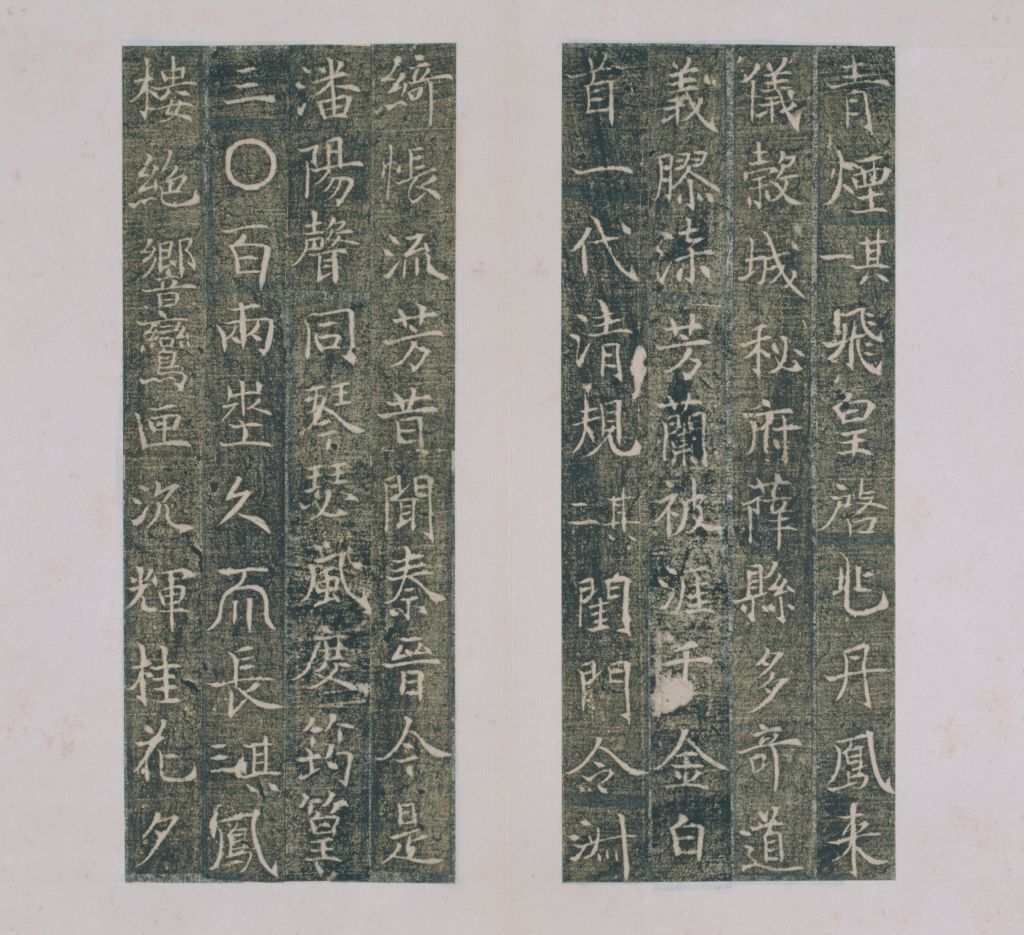 青煙其一飛皇啓兆丹鳳来
儀穀城秘府薛縣多奇道
義膠漆芳蘭被涯千金白
首一代清規其二閨門令淑
綺帳流芳昔聞秦晉今是
潘陽聲同琴瑟風度筠篁
三〇百兩埊久而長其三鳳
樓絕響鸞匣沉輝桂花夕